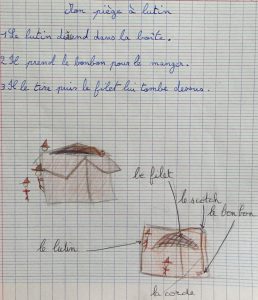 Mon piège à lutin
1 Le lutin déscend dans la boîte.
2 Il prend le bonbon pour le manger.
3 Il le tire puis le filet lui tombe dessus.
le filet
le scotch
le bonbon
le lutin
la corde